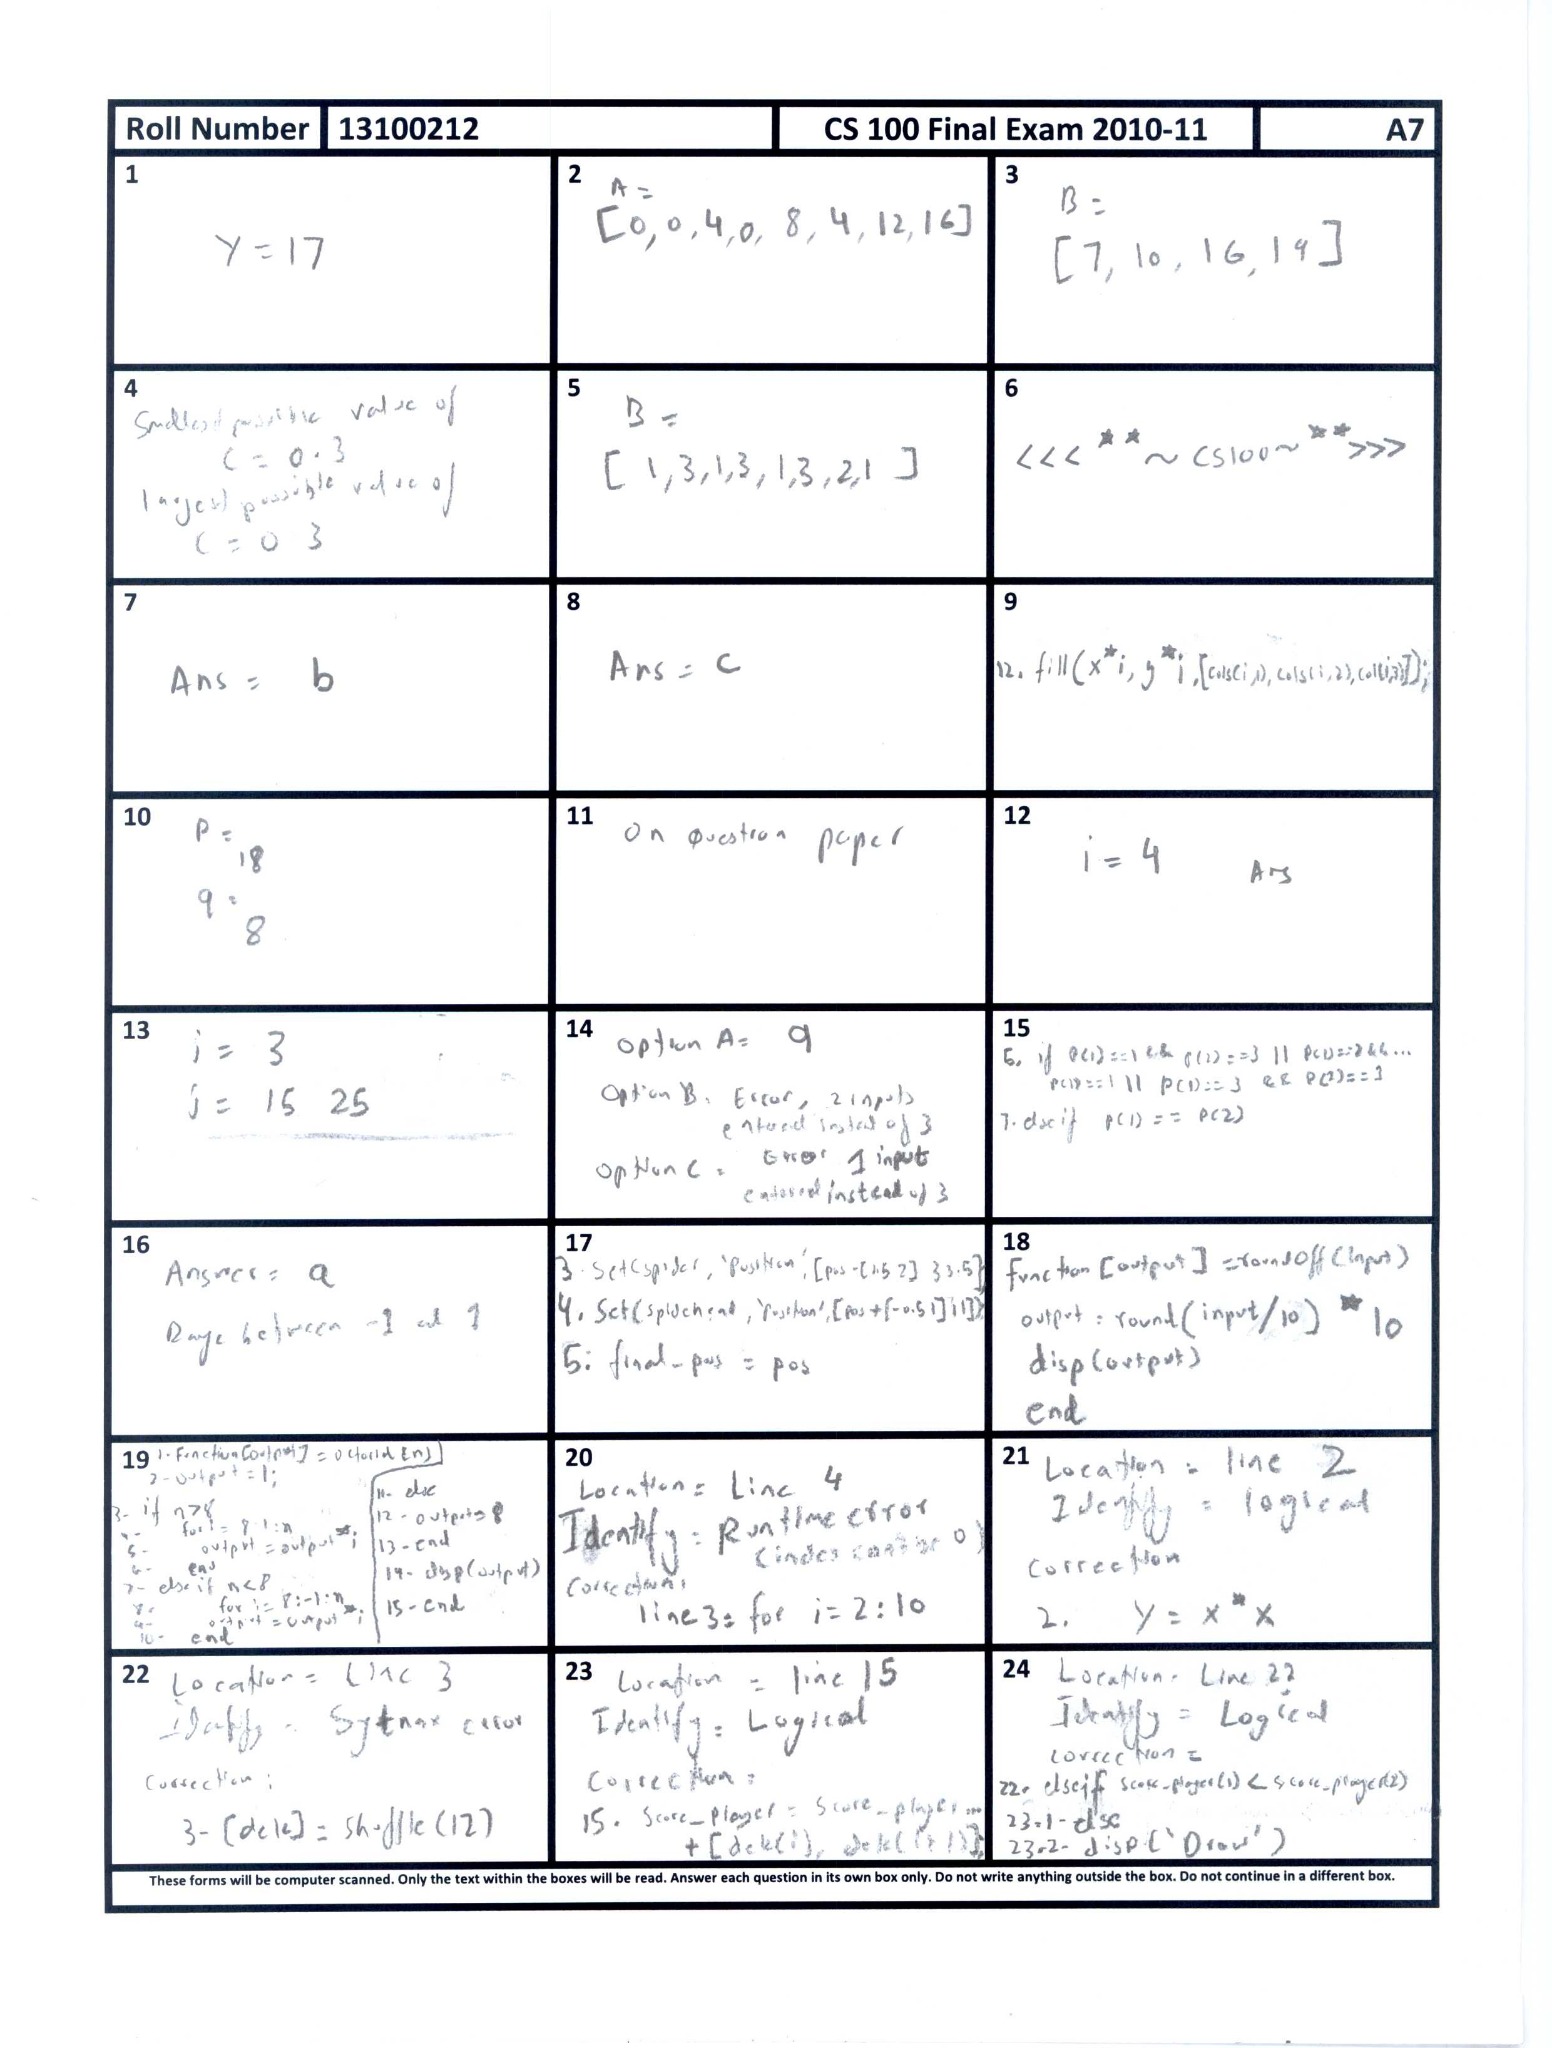 Roll Number 13100212 CS 100 Final Exam 2010-11 A7
1
Y = 17
2
A =
[0,0,4,0,8,4,12,16]
3
B =
[7,10,16,19]
4
Smallest possible value of
C = 0.3
largest possible value of
C = 0 3
5
B =
[1,3,1,3,1,3,2,1]
6
<<<**~CS100~**>>>
7
Ans = b
8
Ans = c
9
12. fill(x*i, y*i,[cols(i,1),cols(i,2),col(i,3)]);
10
P =
18
q =
8
11
On Question paper
12
i = 4 Ans
13
i = 3
j = 15 25
14
Option A = 9
Option B. Error, 2 inputs
entered instead of 3
Option C = Error 1 input
entered instead of 3
15
6. if P(1)==1 && P(2)==3 ||
P(1)==3 && P(2)==1
7. elseif P(1) == P(2)
16
Answer = a
Range between -1 and 1
17
3. Set(spider, 'Position',[pos-[1.5 2] 3 3.5]
4. Set(spidchead, 'Position',[pos+[-0.5 1] 1 1])
5: final_pos = pos
18
function [output] = roundOff(input)
output = round(input/10) * 10
disp(output)
end
19
1- Function[output] = octorial(n)
2- output = 1;
3- if n>8
4- for i = 8:1:n
5- output = output*i
6- end
7- elseif n<8
8- for i = 8:-1:n
9- output = output*i
10- end
11- else
12- output=8
13- end
14- disp(output)
15- end
20
Location = Line 4
Identify = Runtime error
(index cant be 0)
Correction:
line3: for i=2:10
21
Location = line 2
Identify = logical
Correction
2. Y = x*x
22
Location = Line 3
Identify = Sytnax error
Correction:
3- [dek] = shuffle(12)
23
Location = line 15
Identify = Logical
Correction =
15. Score_player = Score_player...
+[dek(i), dek(i+1)];
24
Location = Line 22
Identify = Logical
correction =
22. elseif score_player(1) < score_player(2)
23.1- else
23.2- disp('Draw')
These forms will be computer scanned. Only the text within the boxes will be read. Answer each question in its own box only. Do not write anything outside the box. Do not continue in a different box.